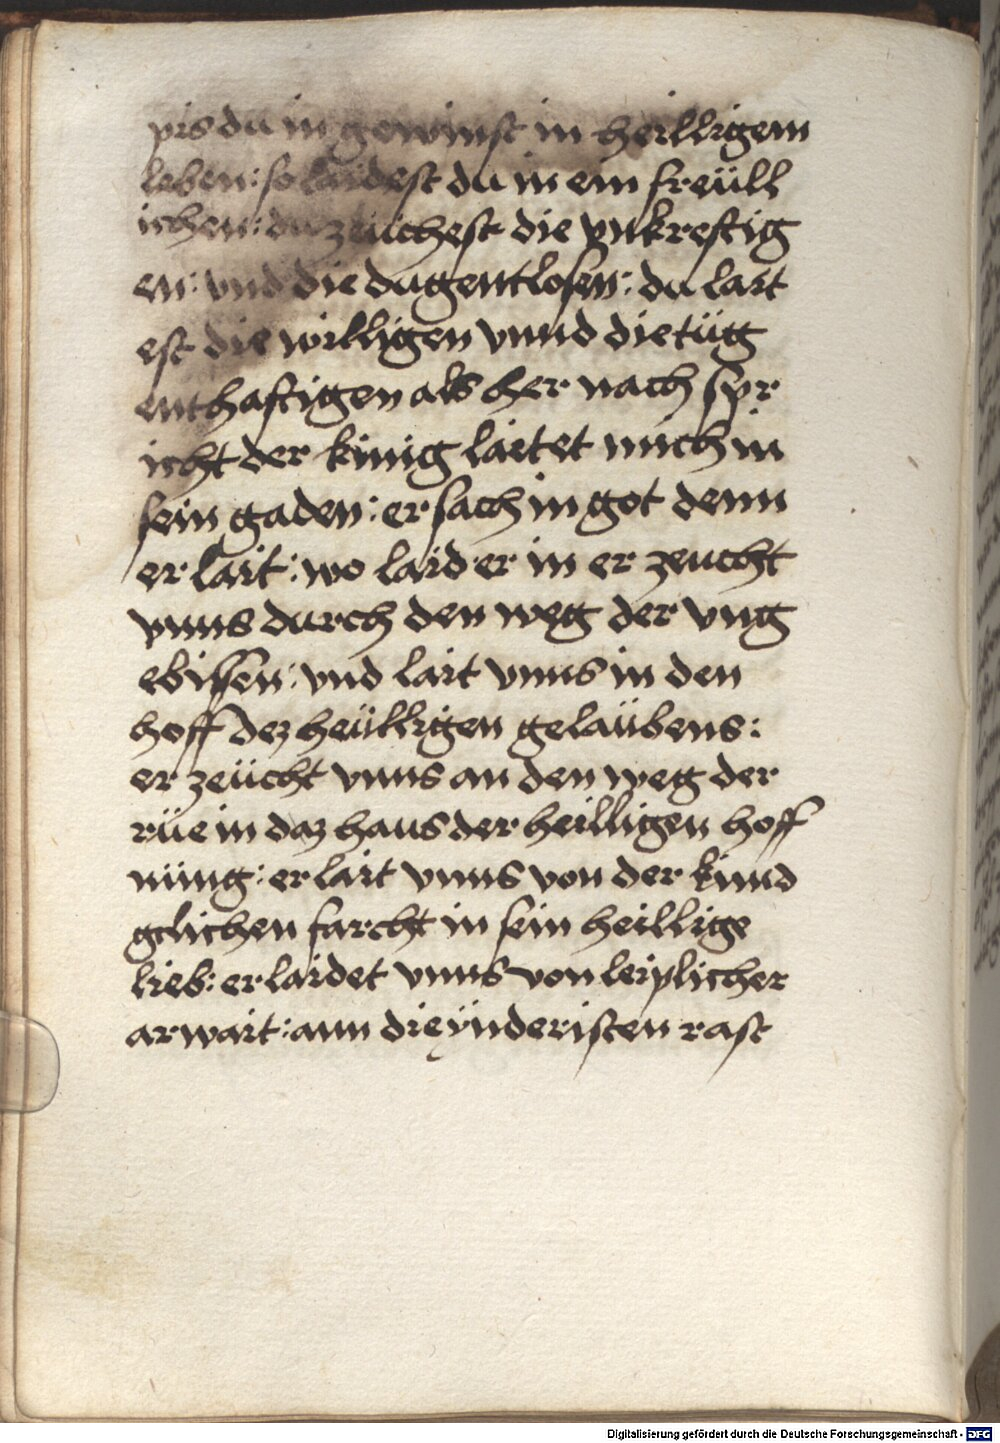 pis du in gewinst in heilligem
leben : so laidest du in ein freüll
ichen : du zeüchest die vnkreftig
en : vnd die dugentlosen : du lait
est die willigen vnnd die tüg
enthaftigen als her nach spr
icht der künig laitet mich in
sein gaden : er sach in got denn
er lait : wo laid er in er zeucht
vnns durch den weg der vng
ebissen : vnd lait vnns in den
hoff dez heülligen gelaübens :
er zeücht vnns an den weg der
rüe in daz haus der heilligen hoff
nüng : er lait vnns von der kind
glichen farcht in sein heillige
lieb : er laidet vnns von leiplicher
arwait : ann die ynderisten rast
Digitalisierung gefördert durch die Deutsche Forschungsgemeinschaft - DFG